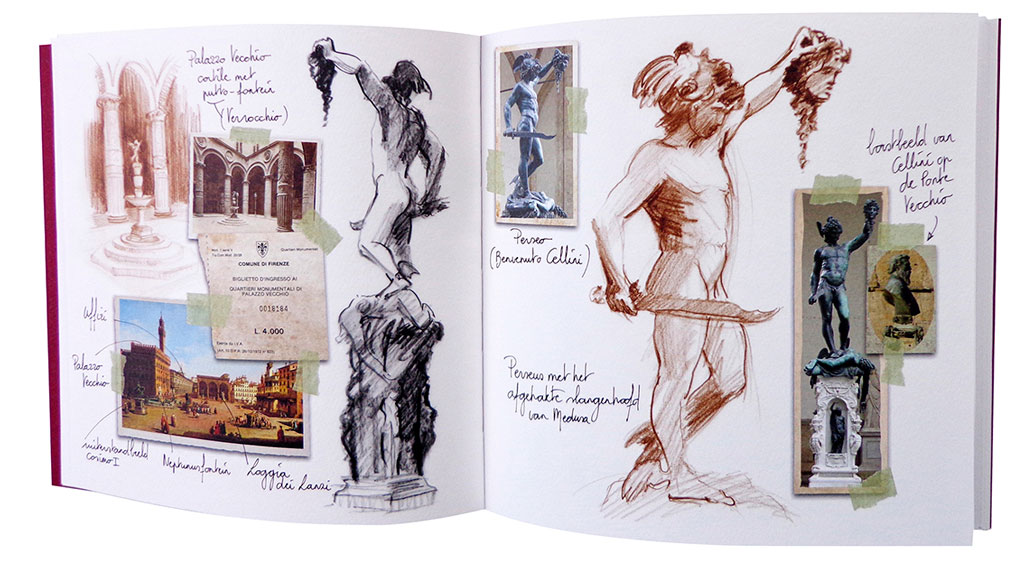 Palazzo Vecchio
cortile met
putto-fontein
(Verrocchio)
COMUNE DI FIRENZE
Quartieri Monumentali
BIGLIETTO D'INGRESSO AI
QUARTIERI MONUMENTALI DI
PALAZZO VECCHIO
0018184
L. 4.000
Uffizi
Palazzo
Vecchio
ruiterstandbeeld
Cosimo I
Neptunusfontein
Loggia
dei Lanzi
Perseo
(Benvenuto Cellini)
Perseus met het
afgehakte slangenhoofd
van Medusa
borstbeeld van
Cellini op
de Ponte
Vecchio